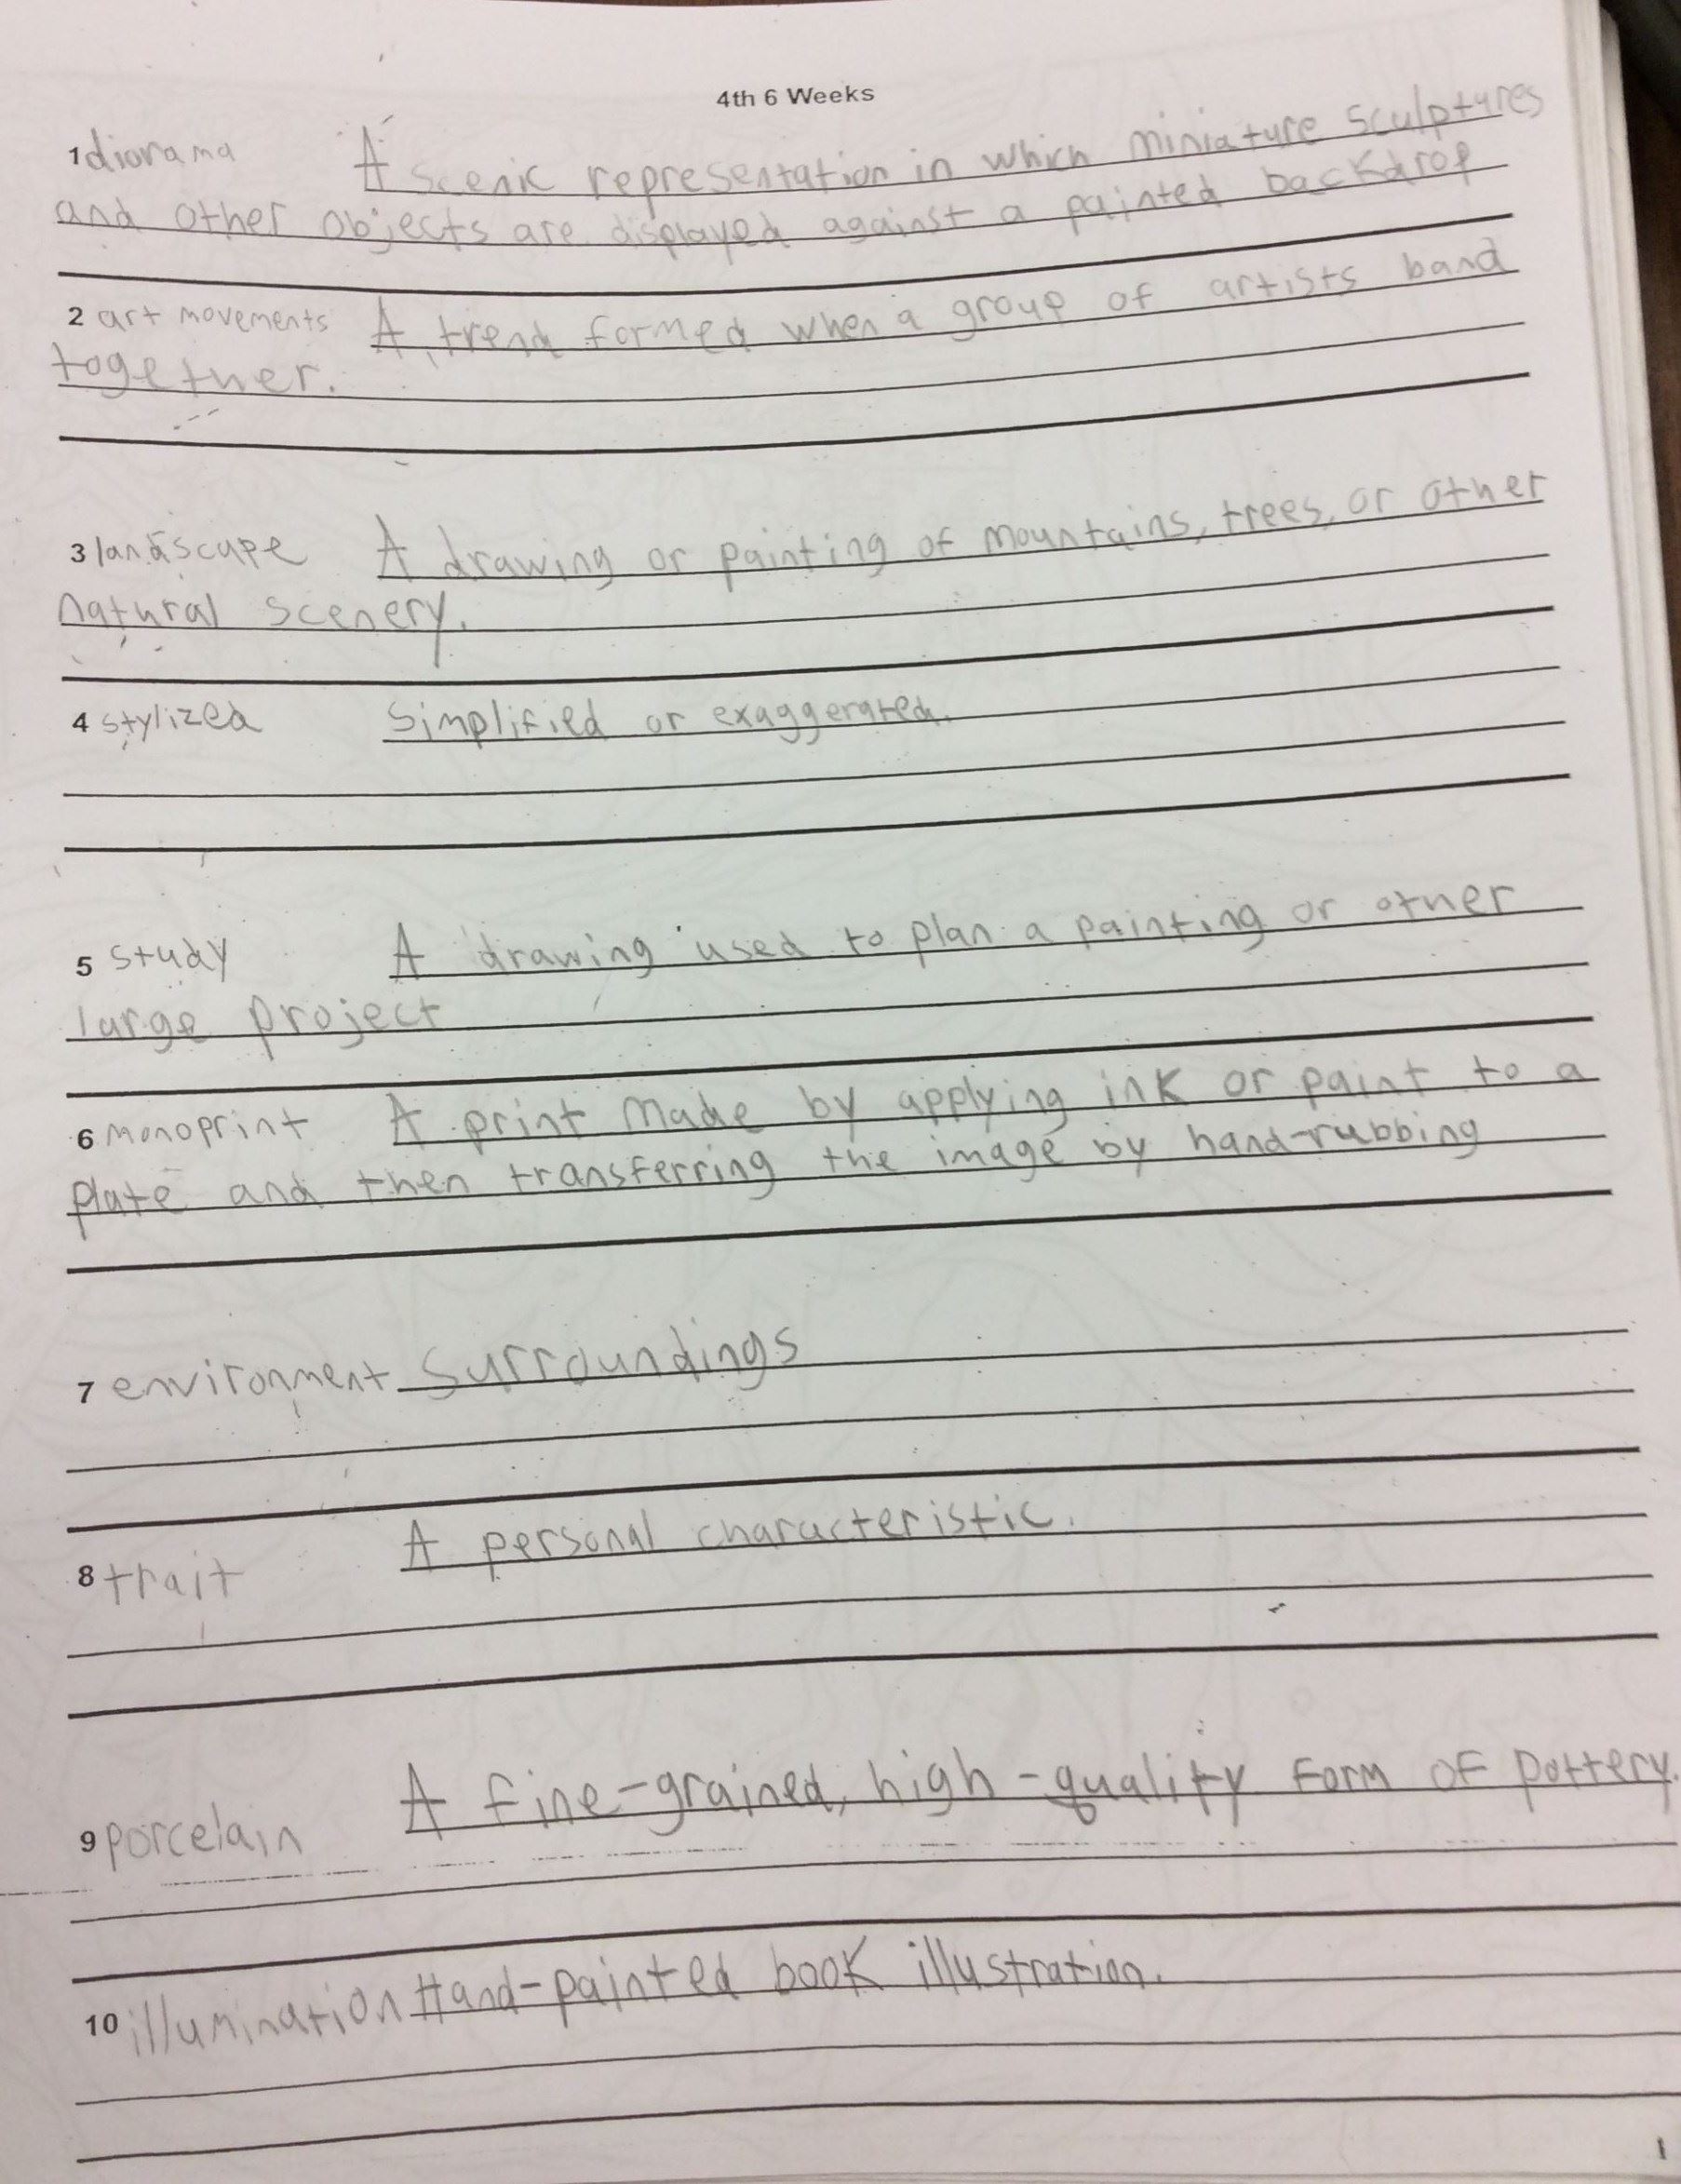 4th 6 Weeks
1 diorama A scenic representation in which miniature sculptures
and other objects are displayed against a painted backdrop
2 art movements A trend formed when a group of artists band
together.
3 landscape A drawing or painting of mountains, trees, or other
natural scenery.
4 stylized Simplified or exaggerated.
5 study A drawing used to plan a painting or other
large project
6 monoprint A print made by applying ink or paint to a
plate and then transferring the image by hand-rubbing
7 environment Surroundings
8 trait A personal characteristic.
9 porcelain A fine-grained, high-quality form of pottery.
10 illumination Hand-painted book illustration.
1